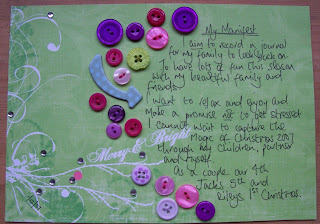 My Manifest
I aim to record a journal
for my family to look back on
To have lots of fun this season
with my beautiful family and
friends.
I want to relax and enjoy and
Make a promise not to get stressed
I cannot wait to capture the
Magic of Christmas 2007
through my children, partner
and myself.
As a couple our 4th
Jacks 5th and
Rileys 1st Christmas.
Merry &